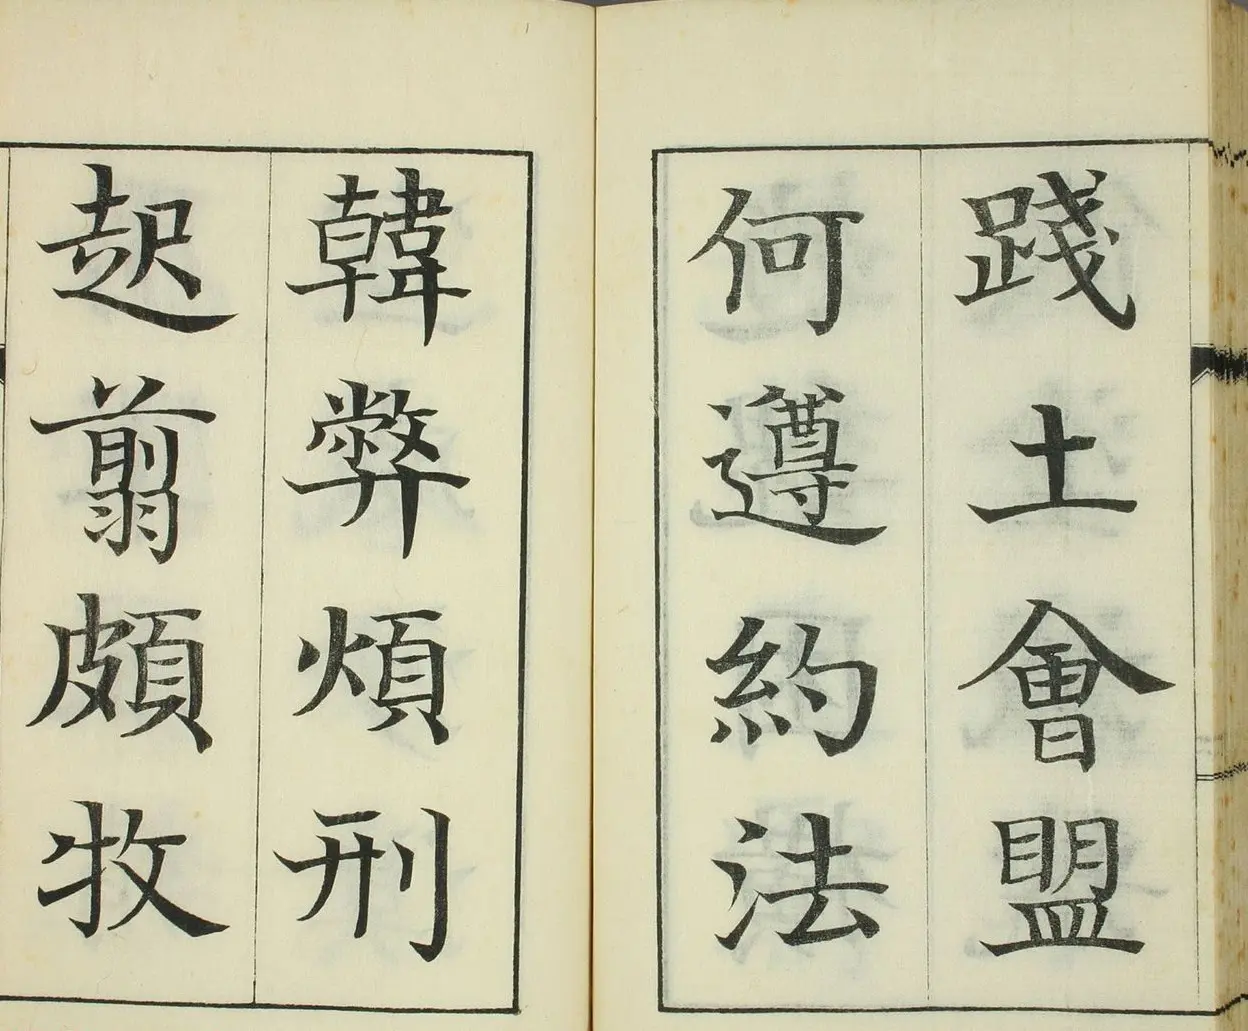 踐土會盟
何遵約法
韓弊煩刑
起翦頗牧